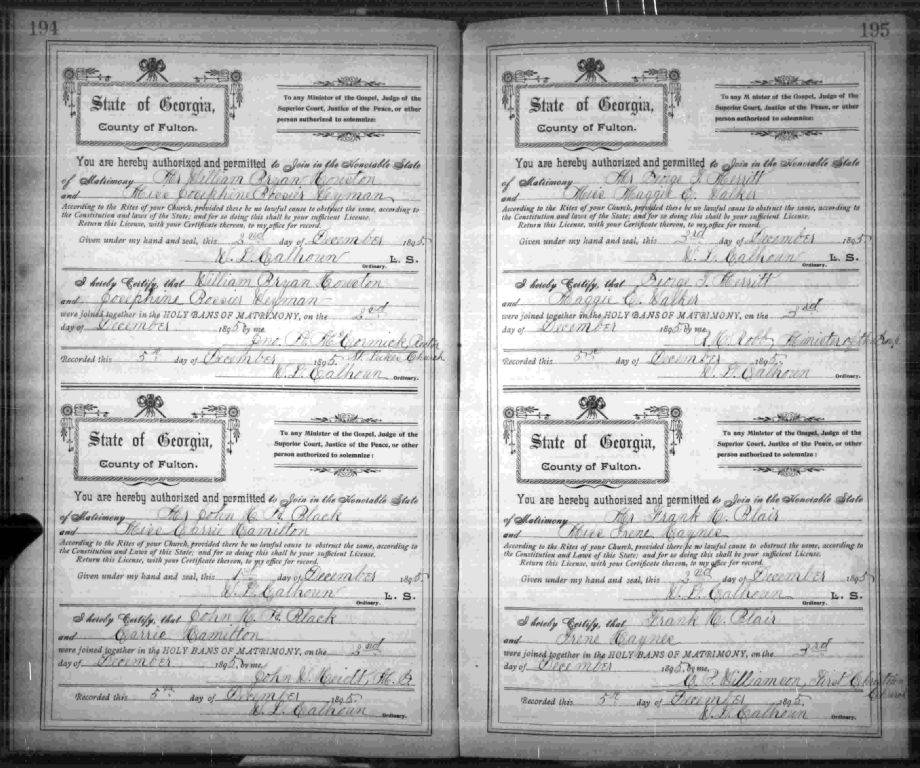 194
State of Georgia,
County of Fulton.
To any Minister of the Gospel, Judge of the
Superior Court, Justice of the Peace, or other
person authorized to solemnize:
You are hereby authorized and permitted to Join in the Honorable State
of Matrimony Mr William Bryan
and Miss Josephine
According to the Rites of your Church, provided there be no lawful cause to obstruct the same, according to
the Constitution and laws of the State; and for so doing this shall be your sufficient License.
Return this License, with your Certificate thereon, to my office for record.
Given under my hand and seal, this 2nd day of December 1895
W. L. Calhoun L. S.
Ordinary.
I hereby Certify, that William Bryan
and Josephine
were joined together in the HOLY BANS OF MATRIMONY, on the 3rd
day of December 1895 by me,
Jno. McCormick
Recorded this 5th day of December 1895. St. Lukes Church
W. L. Calhoun Ordinary.
State of Georgia,
County of Fulton.
To any Minister of the Gospel, Judge of the
Superior Court, Justice of the Peace, or other
person authorized to solemnize:
You are hereby authorized and permitted to Join in the Honorable State
of Matrimony Mr John M. Black
and Miss Carrie Hamilton
According to the Rites of your Church, provided there be no lawful cause to obstruct the same, according to
the Constitution and Laws of this State; and for so doing this shall be your sufficient License.
Return this License, with your Certificate thereon, to my office for record.
Given under my hand and seal, this day of December 1895
W. L. Calhoun L. S.
Ordinary.
I hereby Certify, that John M. Black
and Carrie Hamilton
were joined together in the HOLY BANS OF MATRIMONY, on the 2nd
day of December 1895. by me,
John
Recorded this 5th day of December 1895.
W. L. Calhoun Ordinary.
195
State of Georgia,
County of Fulton.
To any Minister of the Gospel, Judge of the
Superior Court, Justice of the Peace, or other
person authorized to solemnize:
You are hereby authorized and permitted to Join in the Honorable State
of Matrimony Mr George T. Merritt
and Miss Maggie E. Walker
According to the Rites of your Church, provided there be no lawful cause to obstruct the same, according to
the Constitution and laws of the State; and for so doing this shall be your sufficient License.
Return this License, with your Certificate thereon, to my office for record.
Given under my hand and seal, this 3rd day of December 1895
W. L. Calhoun L. S.
Ordinary.
I hereby Certify, that George T. Merritt
and Maggie E. Walker
were joined together in the HOLY BANS OF MATRIMONY, on the 3rd
day of December 1895 by me,
Robb, Minister of the
Recorded this 5th day of December 1895.
W. L. Calhoun Ordinary.
State of Georgia,
County of Fulton.
To any Minister of the Gospel, Judge of the
Superior Court, Justice of the Peace, or other
person authorized to solemnize:
You are hereby authorized and permitted to Join in the Honorable State
of Matrimony Mr Frank M. Blair
and Miss Irene
According to the Rites of your Church, provided there be no lawful cause to obstruct the same, according to
the Constitution and Laws of this State; and for so doing this shall be your sufficient License.
Return this License, with your Certificate thereon, to my office for record.
Given under my hand and seal, this 3rd day of December 1895
W. L. Calhoun L. S.
Ordinary.
I hereby Certify, that Frank M. Blair
and Irene
were joined together in the HOLY BANS OF MATRIMONY, on the 3rd
day of December 1895. by me,
C. P. Williamson, First Christian
Church
Recorded this 5th day of December 1895.
W. L. Calhoun Ordinary.